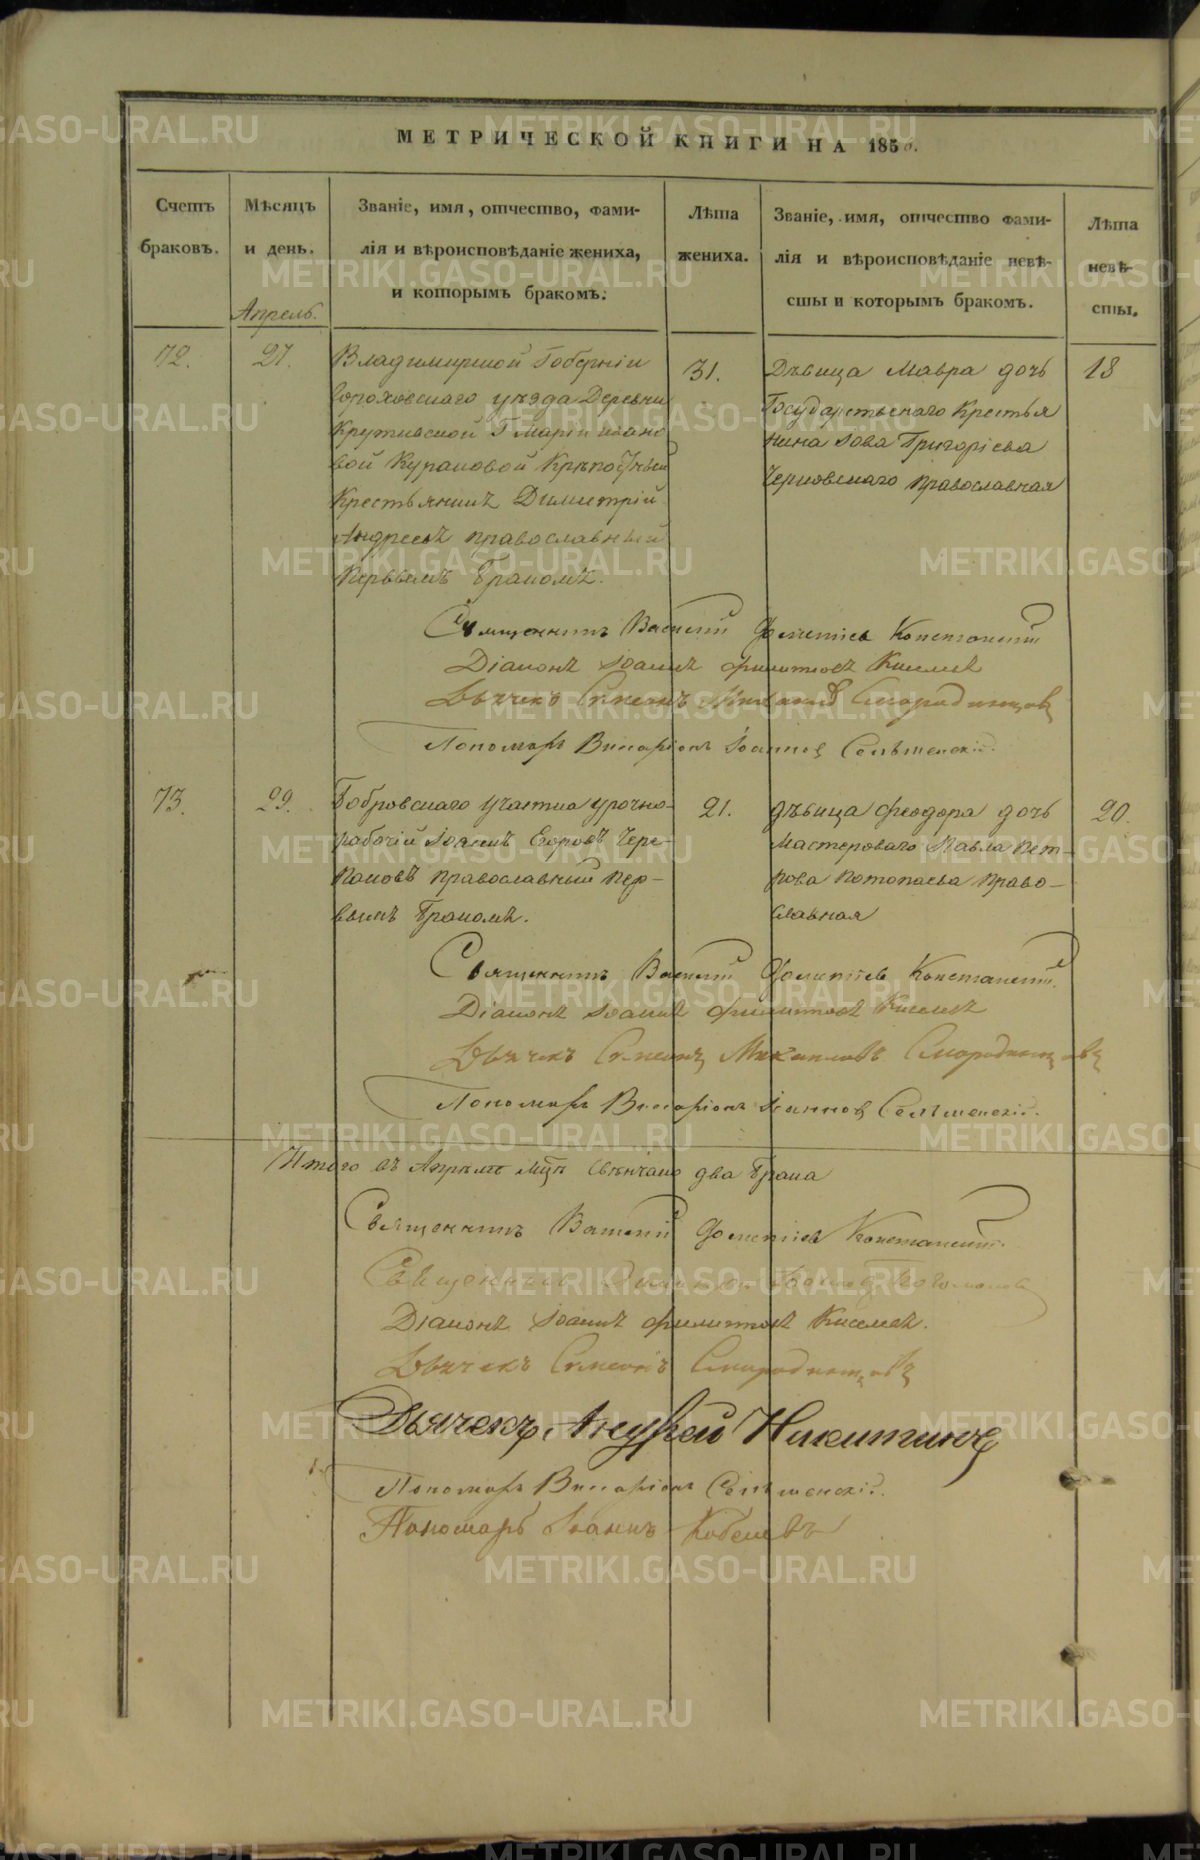 МЕТРИЧЕСКОЙ КНИГИ НА 1856.
Счетъ браковъ.
Мѣсяцъ и день.
Званіе, имя, отчество, фами-
лія и вѣроисповѣданіе жениха,
и которымъ бракомъ.
Лѣта жениха.
Званіе, имя, отчество фами-
лія и вѣроисповѣданіе невѣ-
сты и которымъ бракомъ.
Лѣта невѣ-
сты.
Апрель.
72.
27.
Владимирской Губерніи
уѣзда Деревни
Г. Маріи Ивано
вой Кураковой
Крестьянинъ Димитрій
Андреевъ православный
первымъ бракомъ.
31.
Дѣвица Мавра дочь
Государственаго Крестья
нина Іова Григоріева
Черновскаго православная
18
Священникъ Василій
Діаконъ Іоаннъ Филиповъ Киселевъ
Дьячекъ Симеонъ Смородинцовъ
Пономарь Виссаріонъ Іоанновъ
73.
29.
Бобровскаго участка урочно-
рабочій Іоаннъ Егоровъ Чере-
пановъ православный пер-
вымъ бракомъ.
21.
дѣвица Феодора дочь
Мастероваго Павла Пет-
рова Потопаева право-
славная
20.
Священникъ Василій
Діаконъ Іоаннъ Филиповъ Киселевъ
Дьячекъ Симеонъ Смородинцовъ
Пономарь Виссаріонъ Іоанновъ
Итого въ Апрѣлѣ мцѣ свѣнчано два брака
Священникъ Василій
Священникъ
Діаконъ Іоаннъ Филиповъ Киселевъ.
Дьячекъ Симеонъ Смородинцовъ
Дьячекъ Андрей Никитинъ
Пономарь Виссаріонъ
Пономарь Іоаннъ Кобелевъ
METRIKI.GASO-URAL.RU